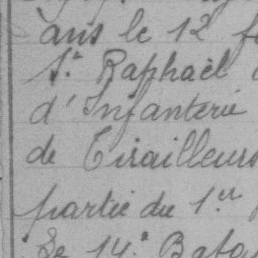 ans le 12
St Raphaël
d'Infanterie
de Tirailleurs
partie du 1er
Le 14e Bata